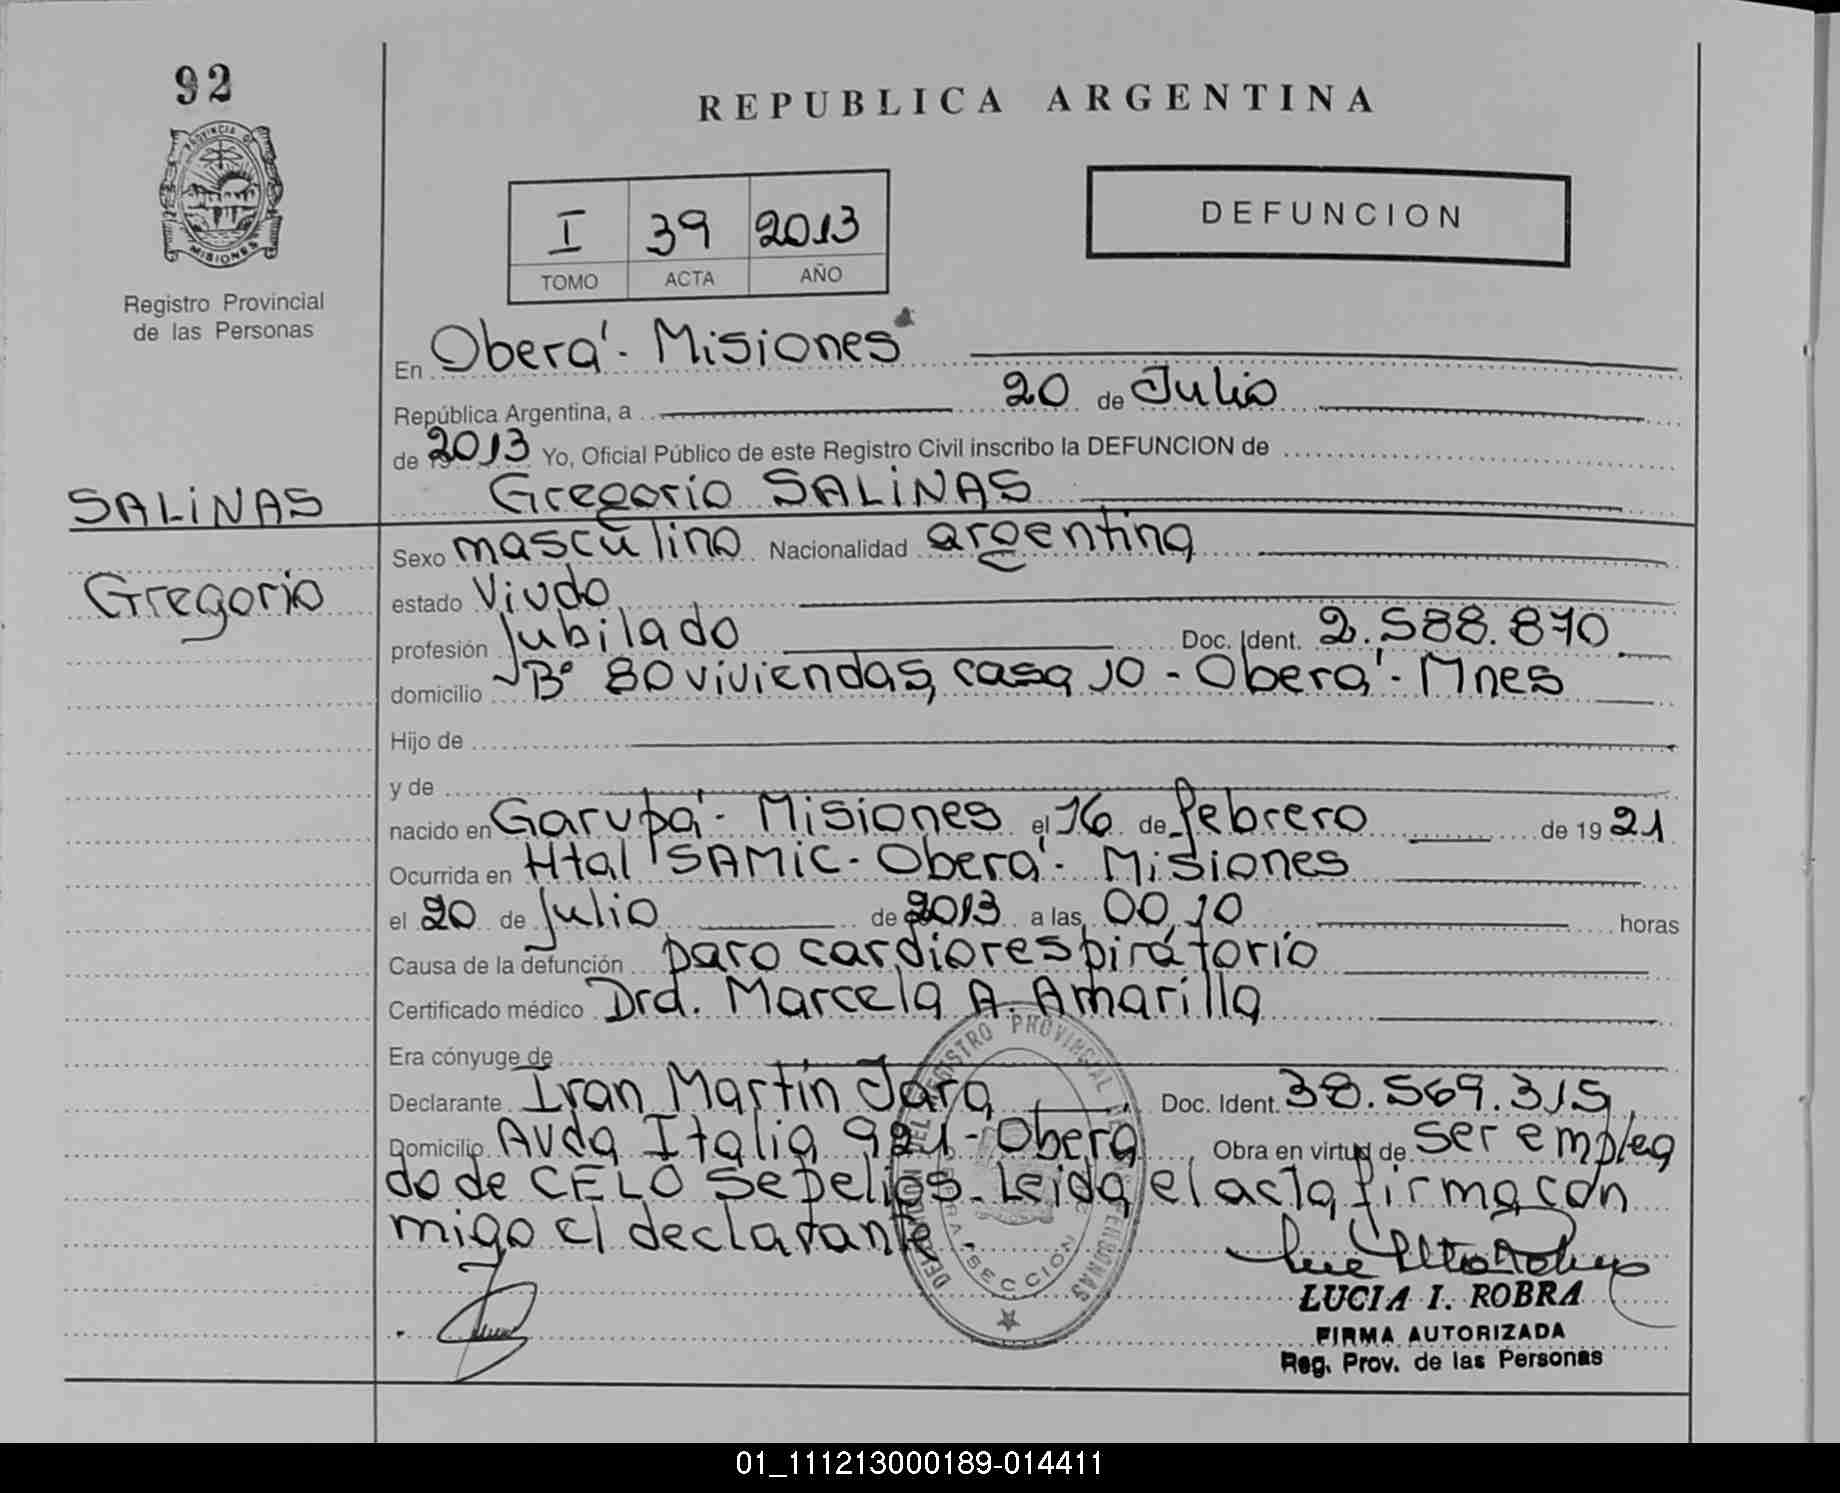 92
PROVINCIA DE
MISIONES
Registro Provincial
de las Personas
REPUBLICA ARGENTINA
I 39 2013
TOMO ACTA AÑO
DEFUNCION
En Oberá - Misiones
República Argentina, a 20 de Julio
de 2013 Yo, Oficial Público de este Registro Civil inscribo la DEFUNCION de
SALINAS
Gregorio SALINAS
Sexo masculino Nacionalidad argentina
Gregorio
estado Viudo
profesión Jubilado Doc. Ident. 2.588.870
domicilio Bº 80 viviendas, casa 10 - Oberá - Mnes
Hijo de
y de
nacido en Garupá - Misiones el 16 de febrero de 1921
Ocurrida en Htal SAMIC - Oberá - Misiones
el 20 de Julio de 2013 a las 00,10 horas
Causa de la defunción paro cardiorespiratorio
Certificado médico Dra. Marcela A. Amarilla
Era cónyuge de
Declarante Ivan Martín Jara Doc. Ident. 38.569.315,
Domicilio Avda Italia 921 - Oberá Obra en virtud de ser emplea
do de CELO Sepelios. Leida el acta firma con
migo el declarante.
REGISTRO PROVINCIAL
PERSONAS
SECCION
LUCIA I. ROBRA
FIRMA AUTORIZADA
Reg. Prov. de las Personas
01_111213000189-014411